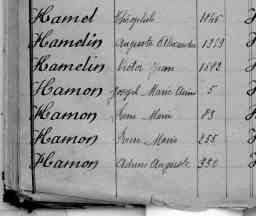 Hamel Théophile 1845
Hamelin Auguste Alexandre 1359
Hamelin Victor Jean 1572
Hamon Joseph Marie Ann 5
Hamon Marie 83
Hamon Marie 255
Hamon Auguste 330